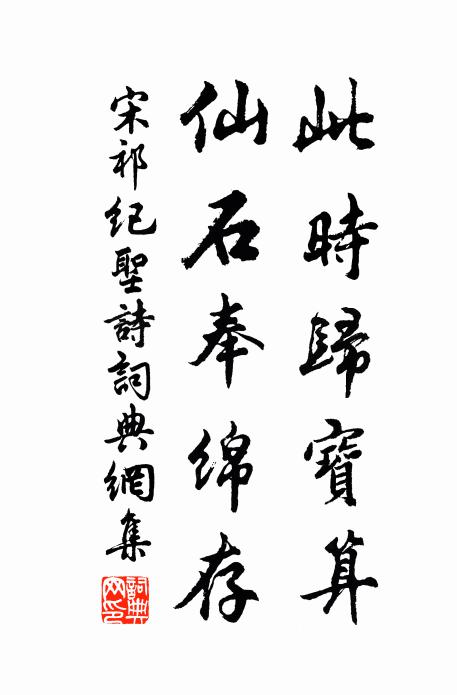 此時歸寶算
仙石奉綿存
宋祁紀聖詩詞典網集
詞典网印